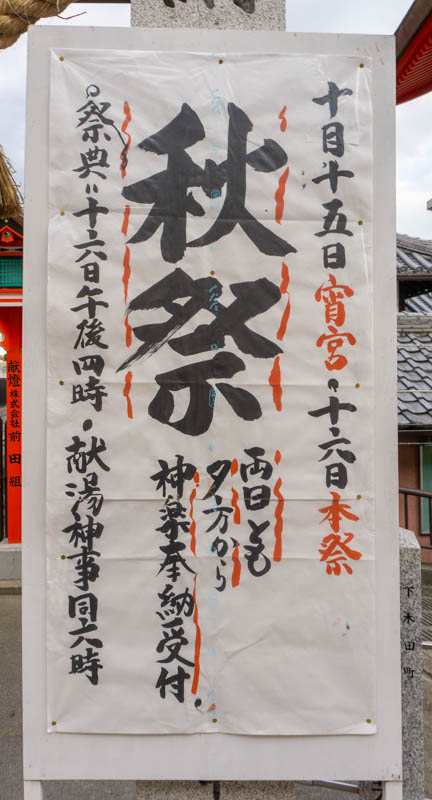 十月十五日宵宮・十六日本祭
秋祭
両日とも
夕方から
神楽奉納受付
・祭典〃十六日午後四時・献湯神事同六時
献燈株式会社前田組
下木田町